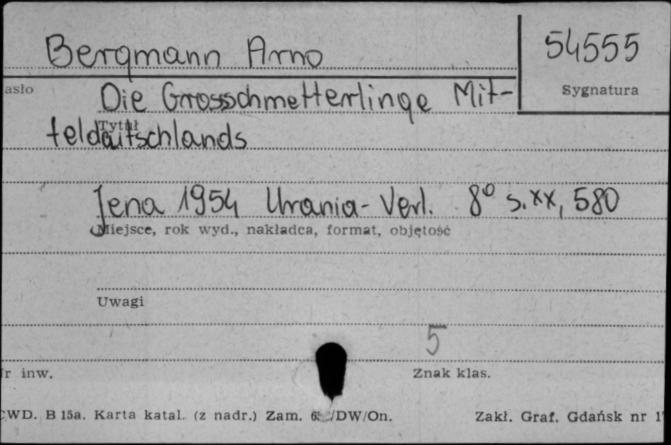 Bergmann Arno
54555
asło
Sygnatura
Die Grossschmetterlinge Mit-
Tytuł
teldeutschlands
Jena 1954 Urania-Verl. 8° s.xx, 580
Miejsce, rok wyd., nakładca, format, objętość
Uwagi
5
r inw.
Znak klas.
CWD. B 15a. Karta katal. (z nadr.) Zam. /DW/On.
Zakł. Graf. Gdańsk nr 1